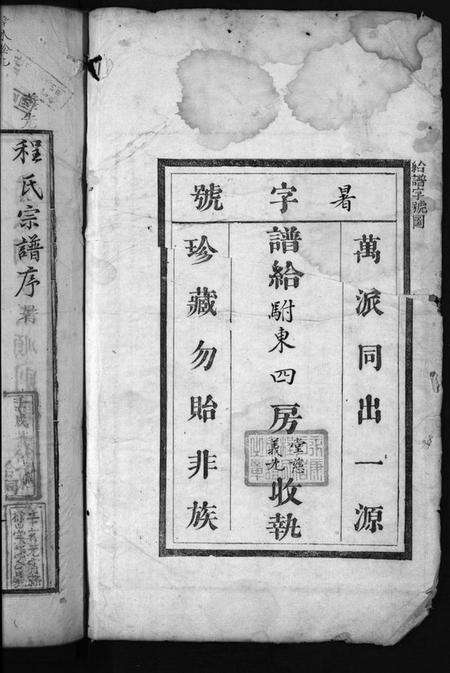 給譜字號圖
暑字號
萬派同出一源
譜給駙東四房收執
珍藏勿貽非族
堂德
義先
程氏宗譜序